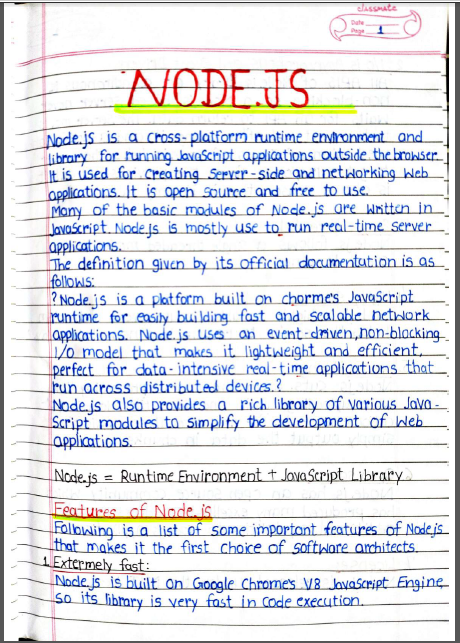 classmate
Date
Page 1
NODE.JS
Node.js is a cross-platform runtime environment and
library for running JavaScript applications outside the browser.
It is used for creating server-side and networking web
applications. It is open source and free to use.
Many of the basic modules of Node.js are written in
JavaScript. Node.js is mostly use to run real-time server
applications.
The definition given by its official documentation is as
follows:
?Node.js is a platform built on chorme's JavaScript
runtime for easily building fast and scalable network
applications. Node.js uses an event-driven, non-blocking
I/O model that makes it lightweight and efficient,
perfect for data-intensive real-time applications that
run across distributed devices.?
Node.js also provides a rich library of various Java-
Script modules to simplify the development of web
applications.
Node.js = Runtime Environment + JavaScript Library
Features of Node.js
Following is a list of some important features of Node.js
that makes it the first choice of software architects.
1. Extermely fast:
Node.js is built on Google Chrome's V8 JavaScript Engine,
so its library is very fast in code execution.